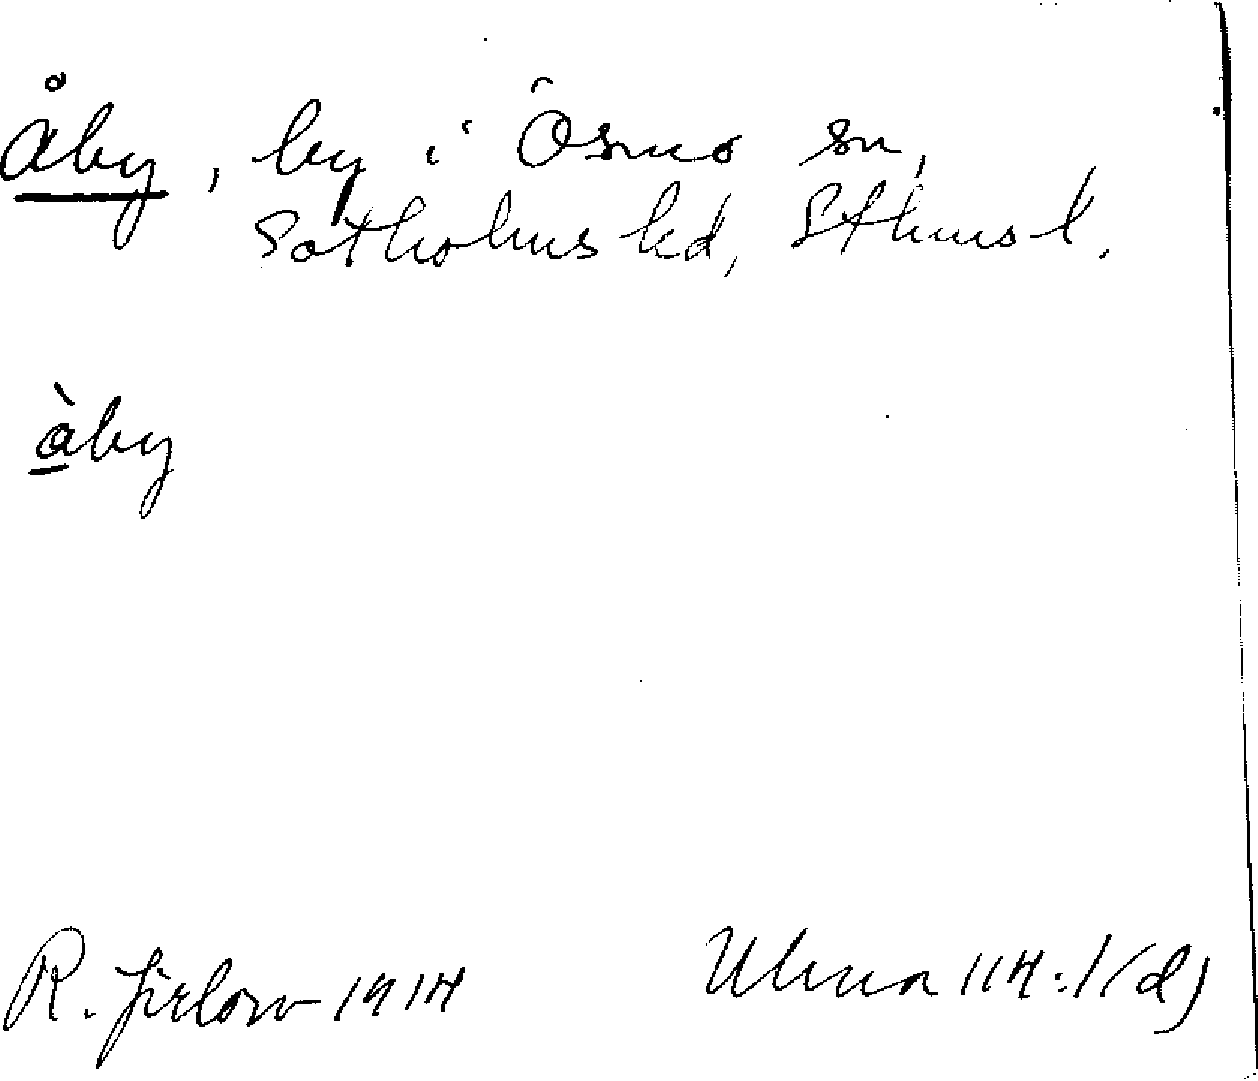 Åby, by i Ösmo sn,
Sotholms hd, Sthms l.
àby
R. Jirlow 1914
Ulma 114:1(d)